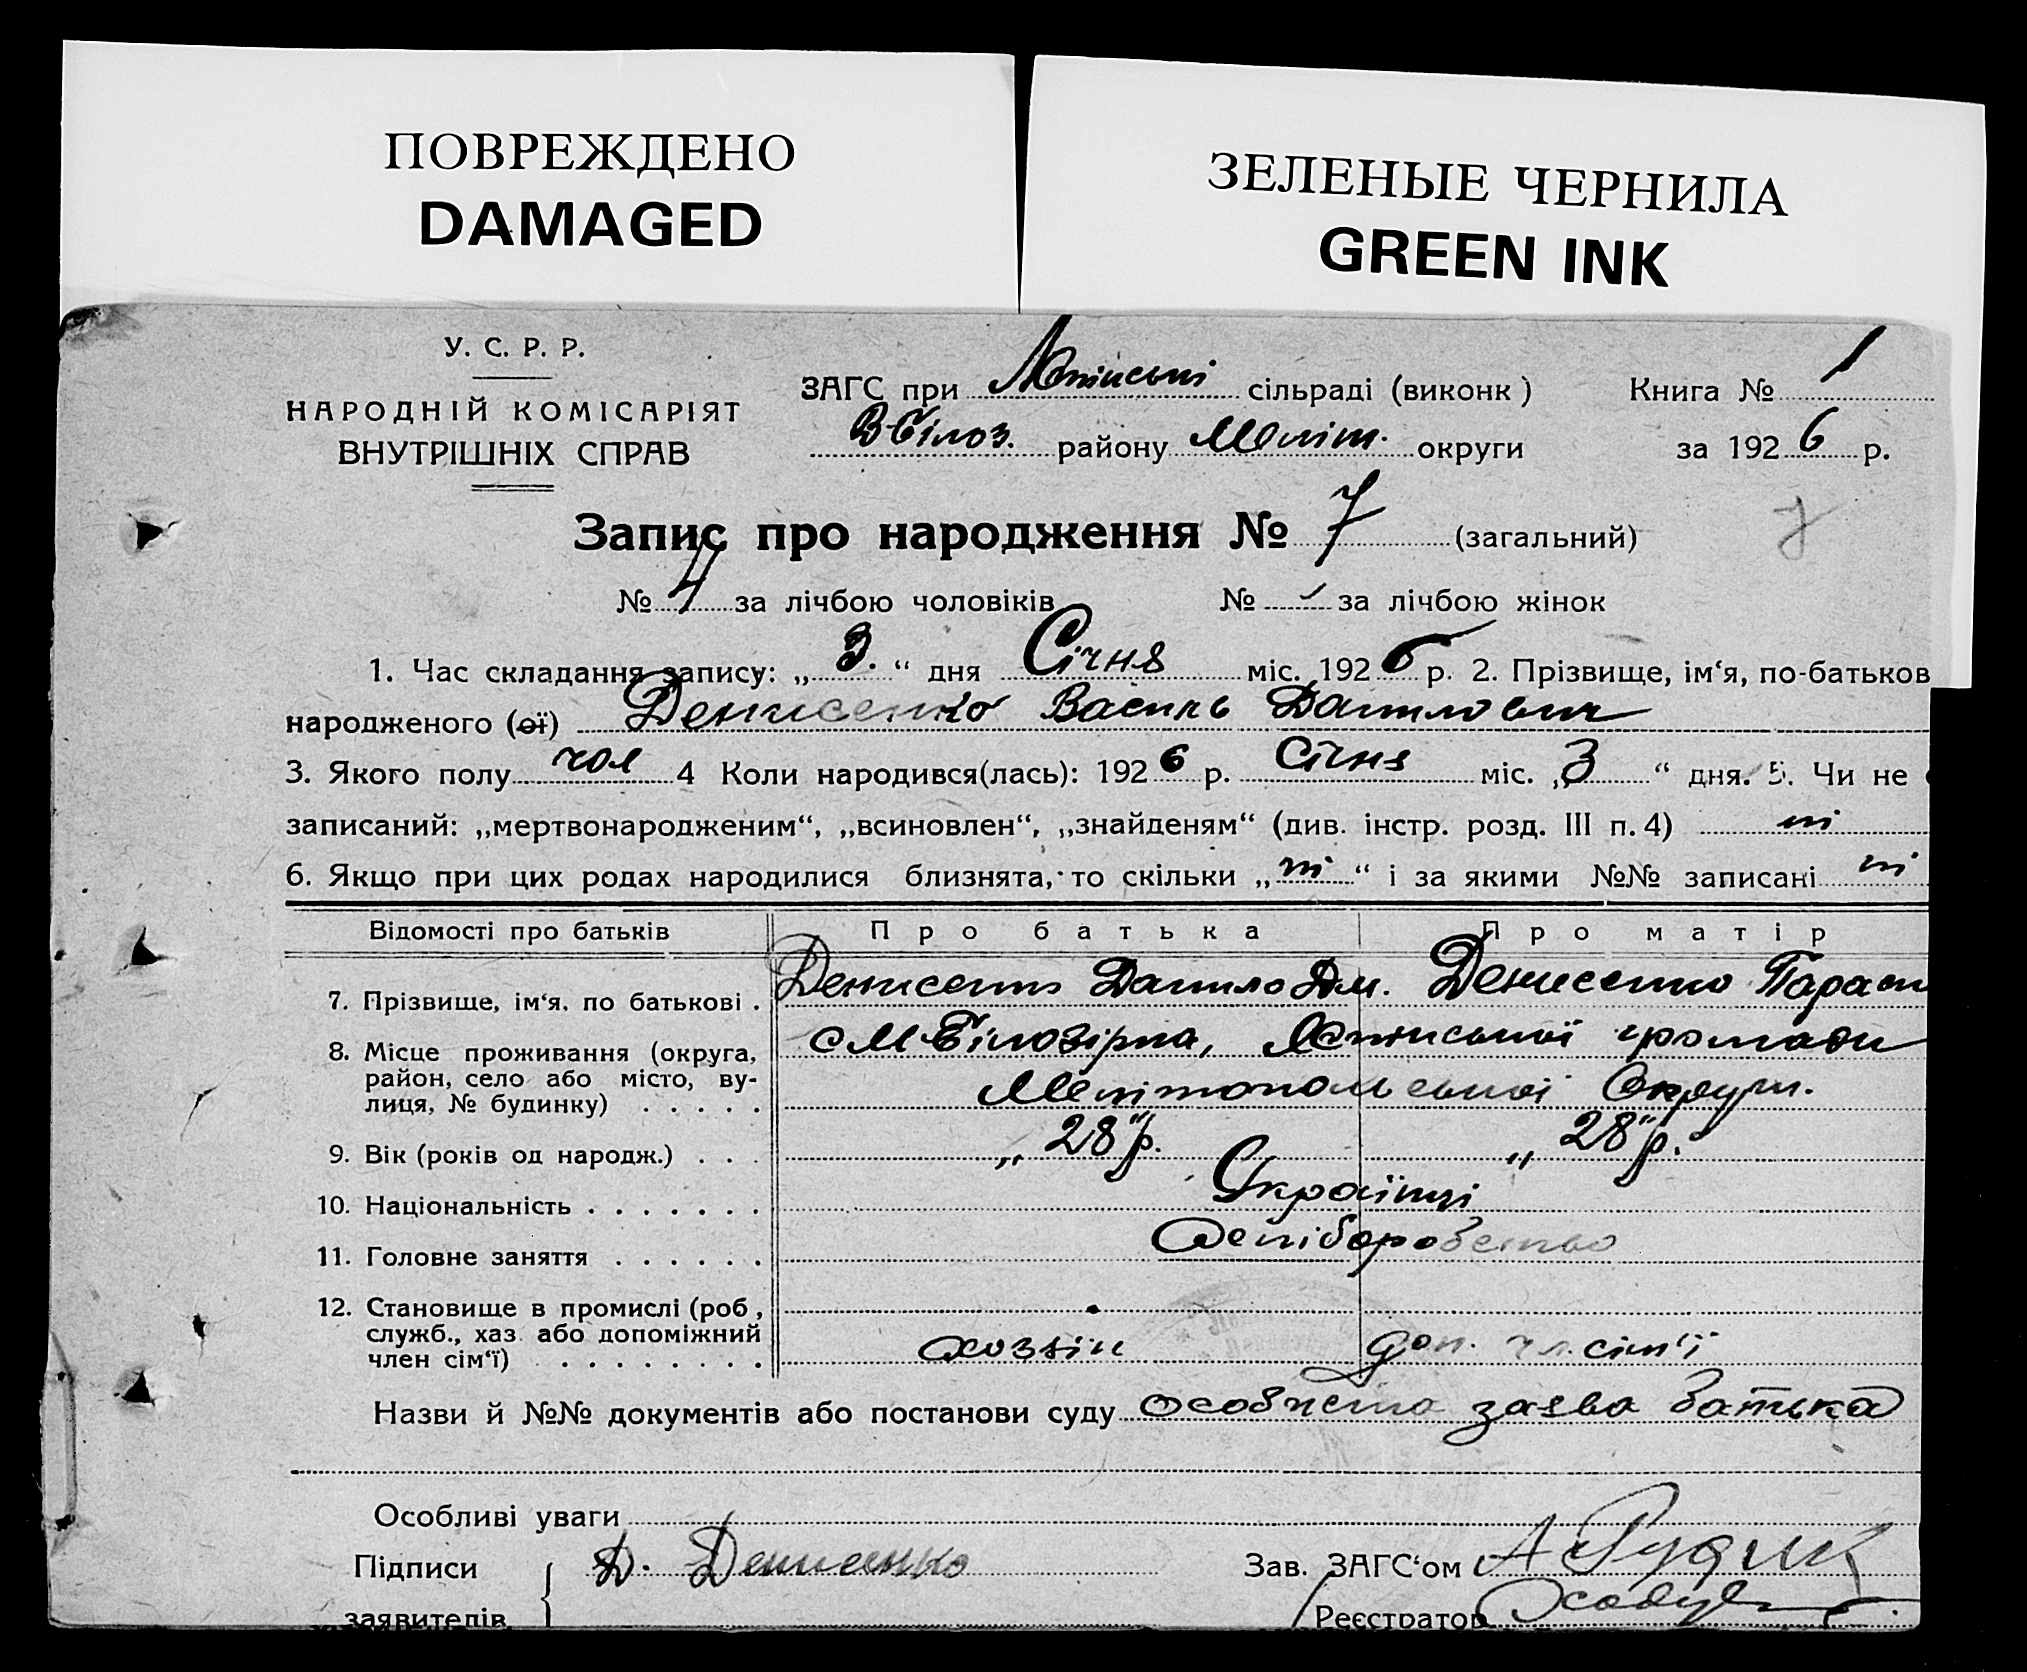 ПОВРЕЖДЕНО
DAMAGED
ЗЕЛЕНЫЕ ЧЕРНИЛА
GREEN INK
У. С. Р. Р.
НАРОДНІЙ КОМІСАРІЯТ
ВНУТРІШНІХ СПРАВ
ЗАГС при сільраді (виконк)
В-Білоз. району Меліт. округи
Книга № 1
за 1926 р.
Запис про народження № 7 (загальний)
7
№ 4 за лічбою чоловіків № за лічбою жінок
1. Час складання запису: „ 3. “ дня Січня міс. 1926 р. 2. Прізвище, ім‘я, по-батьков
народженого (ої) Денисенко Василь Данилович
3. Якого полу чол 4 Коли народився(лась): 1926 р. Січня міс. „3 “ дня. 5. Чи не
записаний: „мертвонародженим“, „всиновлен“, „знайденям“ (див. інстр. розд. III п. 4) ні
6. Якщо при цих родах народилися близнята, то скільки „ ні “ і за якими №№ записані ні
Відомості про батьків Про батька Про матір
7. Прізвище, ім‘я, по батькові . Денисенко Данило Дм. Денисенко Параск
8. Місце проживання (округа, район, село або місто, вулиця, № будинку) . . . . . с М Білозірка, громади
Мелітопольської Округи.
9. Вік (років од народж.) . . . „ 28 “ р. „ 28 “ р.
10. Національність . . . . . . . Українці
11. Головне заняття . . . . . . Хліборобство
12. Становище в промислі (роб., служб., хаз. або допоміжний член сім‘ї) . . . . . . . . хозяїн доп. чл. сім‘ї
Назви й №№ документів або постанови суду особиста заява батька
Особливі уваги
Підписи Д. Денисенко Зав. ЗАГС‘ом А Рудик
заявителів Реєстратор